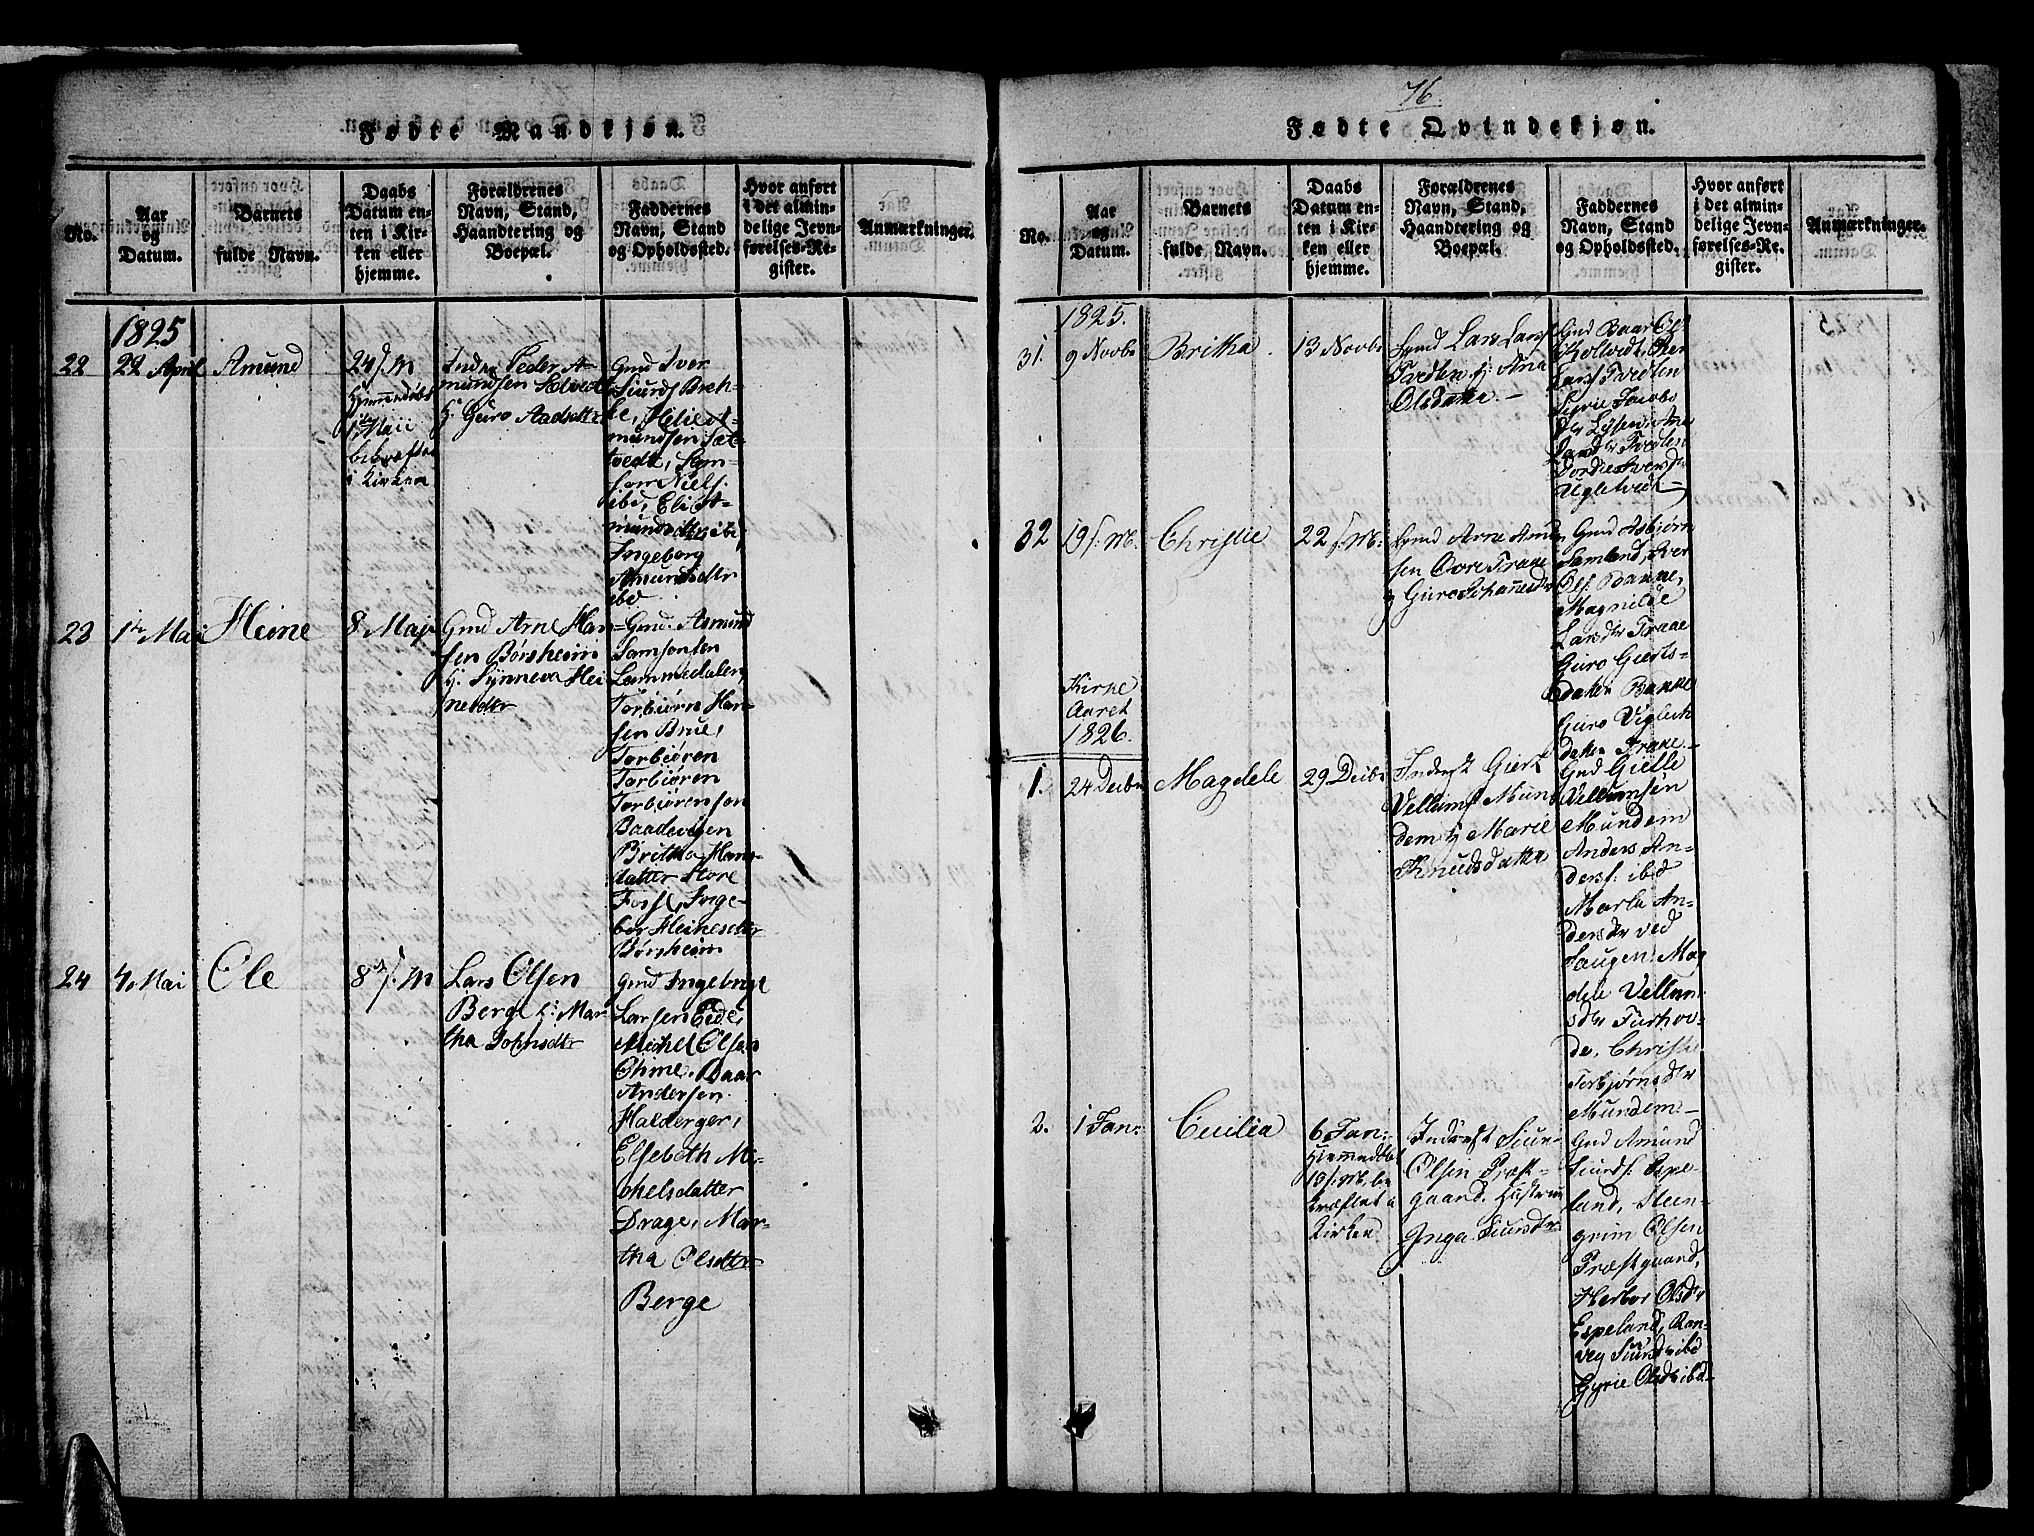 76.
Fødte Mandkjøn.
No.
Aar
og
Datum.
Barnets
fulde Navn.
Daabs
Datum en-
ten i Kir-
ken eller
hjemme.
Forældrenes
Navn, Stand,
Haandtering og
Boepæl.
Faddernes
Navn, Stand
og Opholdssted.
Hvor anført
i det almin-
delige Jevn-
førelses-Re-
gister.
Anmærkninger.
1825
22
22 April
Amund
24 s. M
Hjemmedøbt
1 Maii
bekræftet
i Kirken
Inder Peder A-
mundsen
H. Guro Aadsdtr
Gmd Iver
Siurds
Helie A-
mundsen Sæt-
vedt, Sam-
son Niels.
ibd, Eli A-
mundsdttr ibd,
Ingeborg
Amundsdtr
ibd
23
1ste Mai
Heine
8 Maj
Gmd Arne Han-
sen Børsheim
H. Synneva Hei-
nesdtr
Gmd. Asmund
Samsonsen
Lammedalen,
Torbiørn Han-
sen Brue,
Torbiøren
Torbiøren
Torbiørensen
Baadevigen
Britha Hans-
datter Store
Foss, Inge-
bor Heinesdtr
Børsheim
24
4 Mai
Ole
8 s. M
Lars Olsen
Berge H: Mar
tha Johnsdtr
Gmd Ingebrigt
Larsen Eide,
Michel Olsen
Ohme, Baar
Andersen
Halderger,
Elsebeth Mi-
chelsdatter
Drage, Mar-
tha Olsdtr
Berge
Fødte Qvindekjøn.
No.
Aar
og
Datum.
Barnets
fulde Navn.
Daabs
Datum en-
ten i Kir-
ken eller
hjemme.
Forældrenes
Navn, Stand,
Haandtering og
Boepæl.
Faddernes
Navn, Stand
og Opholdssted.
Hvor anført
i det almin-
delige Jevn-
førelses-Re-
gister.
Anmærkninger.
1825.
31.
9 Novbr
Britha
13 Novbr
Gmd Lars Lars
Tvedten H. Ana
Olsdatter
Gmd Baar Ol
Lars Tvedten
Syrie Jacobs
Larsdtr Tvedten
Tordie Iversdtr
Ugletvedt
32
19 s. M.
Christie
22 s. M.
Gmd Arne Amun
sen Øvre Trane
H Guro Johannesdtr
Gmd Asbjørn
Samland, Iver
Ols. Banne,
Magnilde
Larsdtr Trane
Guro Gierts-
datter Banne
Guro Viglich
datter Trane
Kirke
Aaret
1826.
1.
24 Decbr
Magdele
29 Decbr
Inderst Giert
Vellums Mun
dem H Marie
Knudsdatter
Gmd Gielle
Vellumsen
Mundem
Anders An-
ders. ibd
Marta An-
dersdtr ved
Haugen, Mag
dele Vellum
sdtr Furhov-
de, Christie
Torbjørnsdtr
Mundem
2.
1 Jan:
Cecilia
6 Jan:
Hjemmedøbt
19 s. M. be
kræftet i
Kirken
Inderst Siur
Olsen Præst-
gaard. Hustrue
Inga Siursdtr
Gmd Amund
Siurds. Espe-
land, Steen-
grim Olsen
Præstgaard,
Herbor Olsdtr
Espeland, Ran-
vey Siursdtr ibd
Gyrie Olsdtr ibd